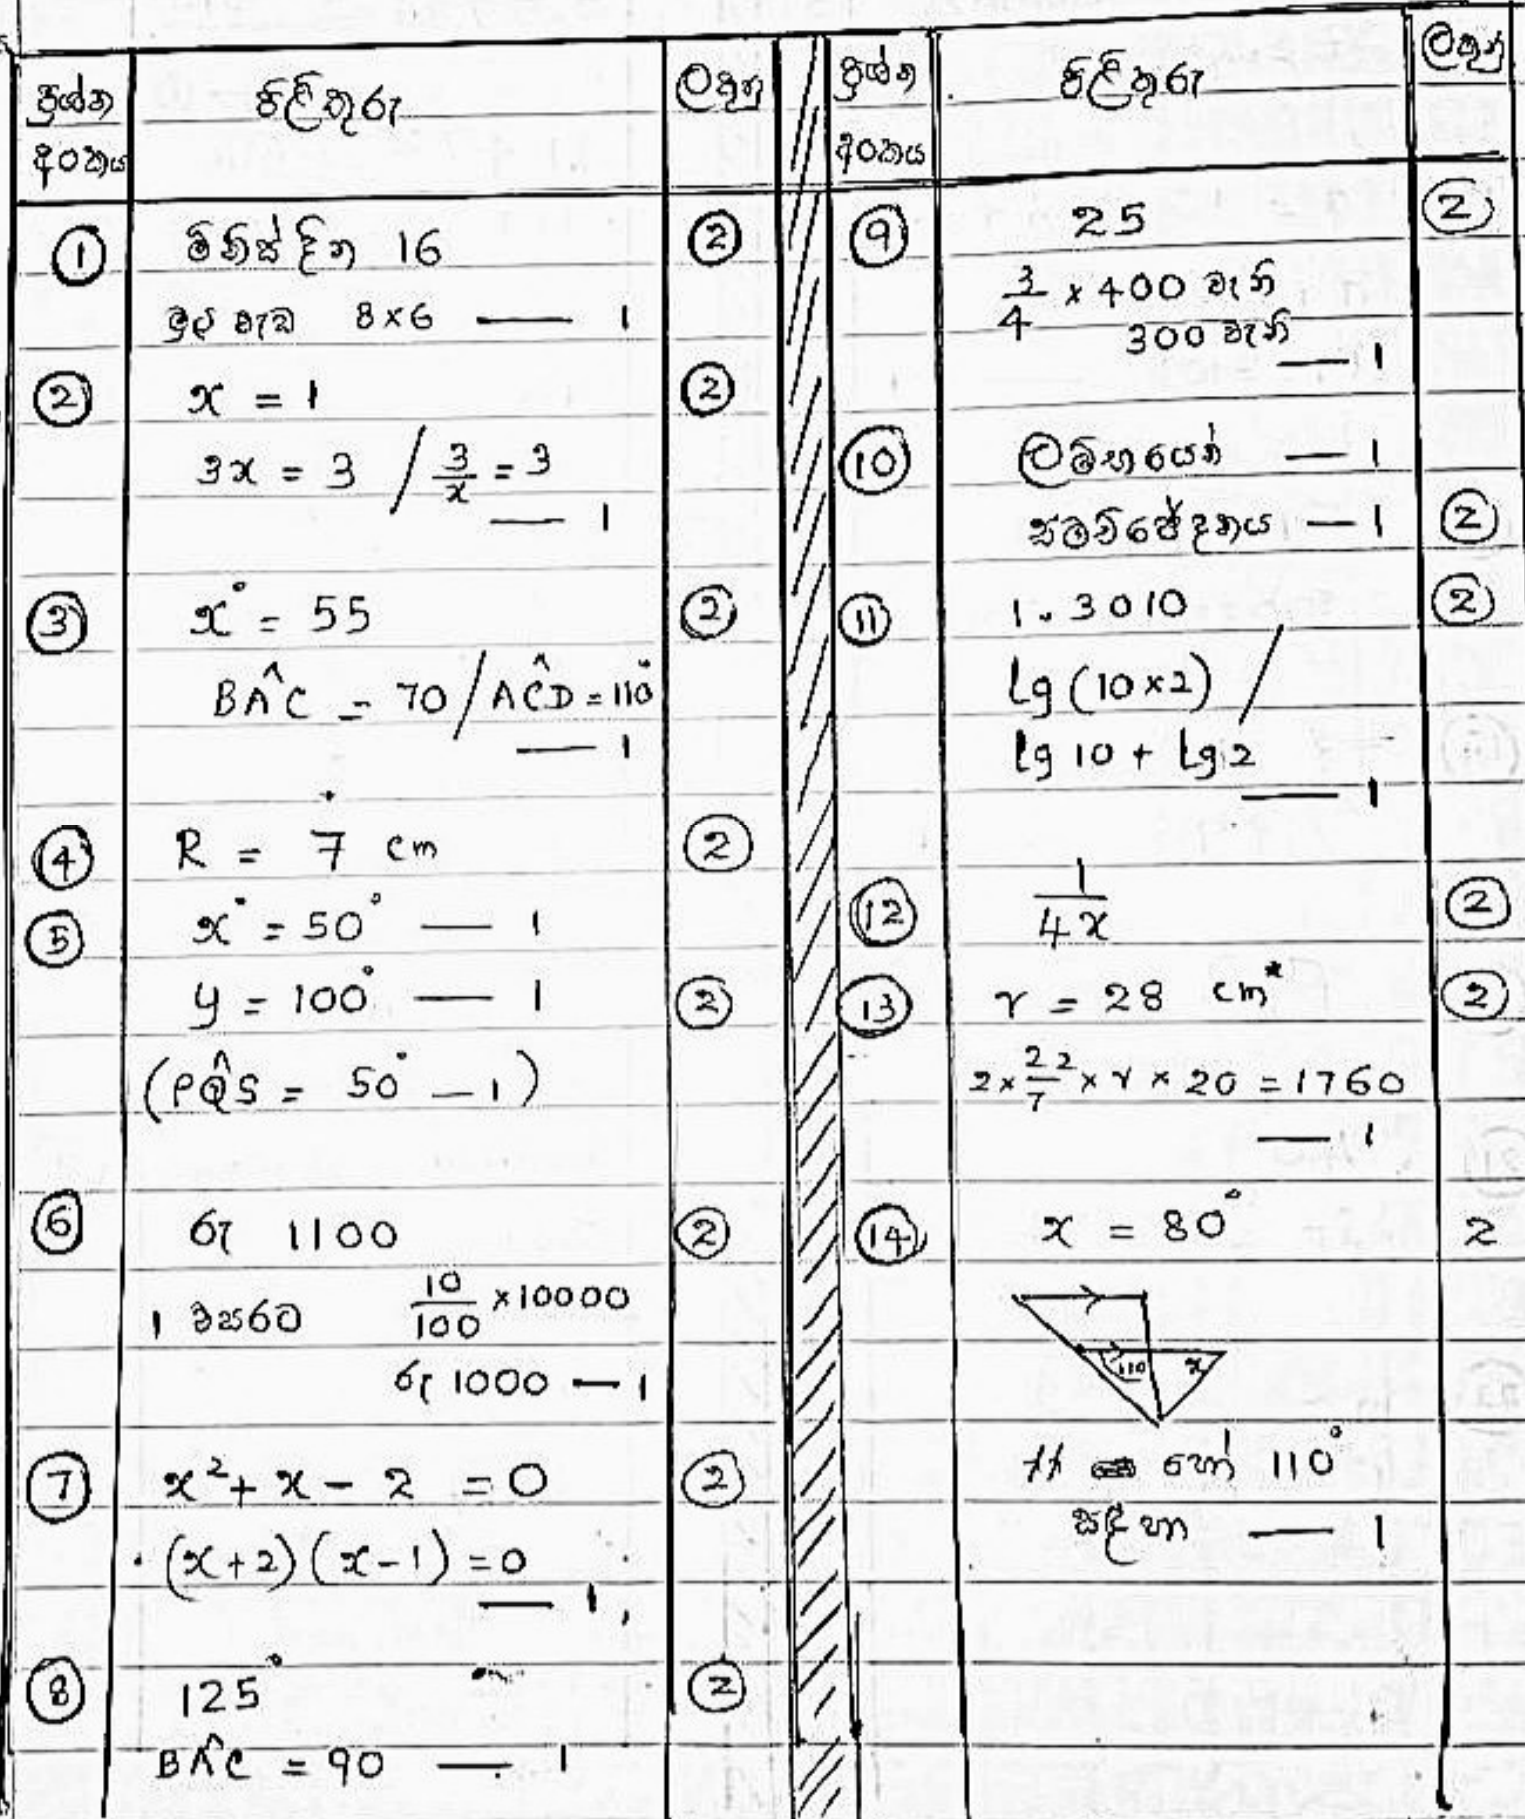 ප්‍රශ්න අංකය
පිළිතුරු
ලකුණු
① මිනිස් දින 16 ②
මුලු වැඩ 8×6 — 1
② x = 1 ②
3x = 3 / 3/x = 3
— 1
③ x° = 55 ②
BÂC = 70 / AĈD = 110°
— 1
④ R = 7 cm ②
⑤ x° = 50° — 1
y = 100° — 1 ②
(PQ̂S = 50° — 1)
⑥ රු 1100 ②
1 වසරට 10/100 ×10000
රු 1000 — 1
⑦ x² + x − 2 = 0 ②
(x+2)(x−1) = 0
— 1
⑧ 125° ②
BÂC = 90 — 1
ප්‍රශ්න අංකය
පිළිතුරු
ලකුණු
⑨ 25 ②
3/4 × 400 වැනි
300 වැනි
— 1
⑩ ලම්භයෙන් — 1
සමච්ඡේදනය — 1 ②
⑪ 1.3010 ②
lg (10×2) /
lg 10 + lg 2
— 1
⑫ 1/4x ②
⑬ r = 28 cm ②
2 × 22/7 × r × 20 = 1760
— 1
⑭ x = 80° 2
110 x
හෝ 110°
සඳහා — 1